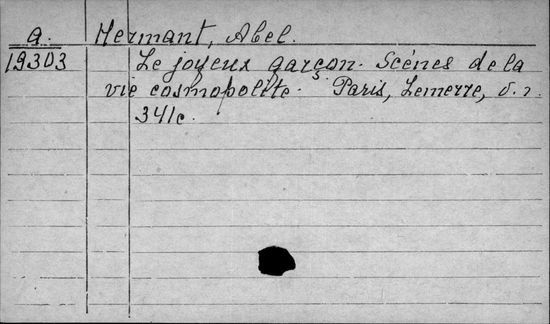 a. Hermant, Abel.
19303 Le joyeux garçon. Scénes de la
vie cosmopolite. Paris, Lemerre, s. a.
341c.